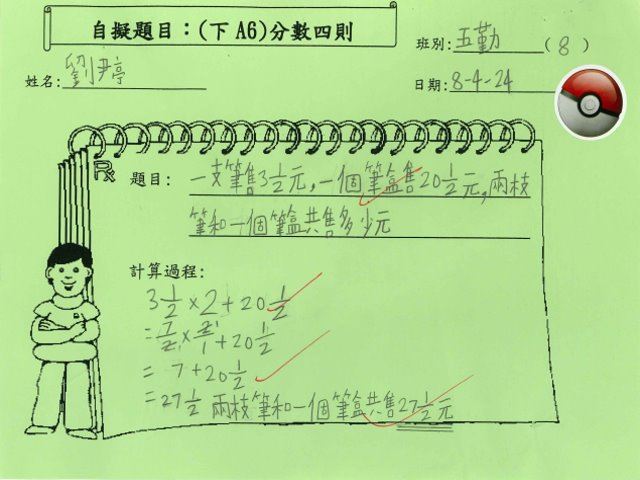 自擬題目：(下 A6)分數四則
班別: 五勤 ( 8 )
姓名: 劉尹亭
日期: 8-4-24
題目: 一支筆售3 1/2元,一個筆盒售20 1/2元,兩枝
筆和一個筆盒共售多少元
計算過程:
3 1/2 × 2 + 20 1/2
= 7/2 × 2/1 + 20 1/2
= 7 + 20 1/2
= 27 1/2 兩枝筆和一個筆盒共售27 1/2元